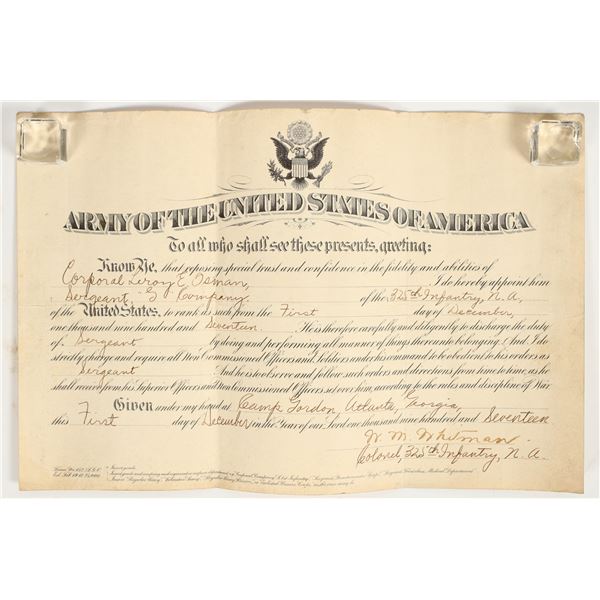 ARMY OF THE UNITED STATES OF AMERICA
To all who shall see these presents, greeting:
Know Ye, that reposing special trust and confidence in the fidelity and abilities of
Corporal Leroy E. Osman, I do hereby appoint him
Sergeant, G Company, of the 325th Infantry, N.A.,
of the United States, to rank as such from the First day of December,
one thousand nine hundred and Seventeen. He is therefore carefully and diligently to discharge the duty
of Sergeant by doing and performing all manner of things thereunto belonging. And I do
strictly charge and require all Non Commissioned Officers and Soldiers under his command to be obedient to his orders as
Sergeant And he is to observe and follow such orders and directions from time to time, as he
shall receive from his Superior Officers and Non Commissioned Officers set over him, according to the rules and discipline of War.
Given under my hand at Camp Gordon, Atlanta, Georgia,
this First day of December in the Year of our Lord one thousand nine hundred and Seventeen
W. M. Whitman.
Colonel, 325th Infantry, N.A.